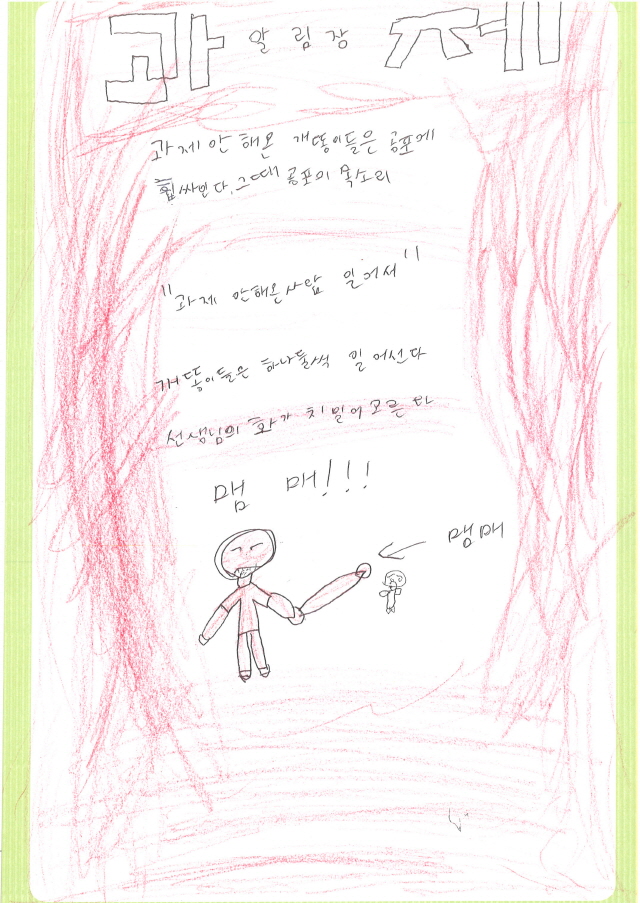 과 알림장 제
과제 안 해온 개똥이들은 공포에
휩싸인다. 그때 공포의 목소리
"과제 안해온사람 일어서"
개똥이들은 하나둘씩 일어선다
선생님의 화가 치밀어 오른다
맴 매!!!
맹매